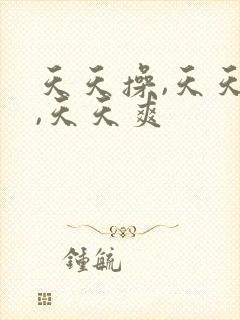 天天操,天天
,天天爽
鍾毓